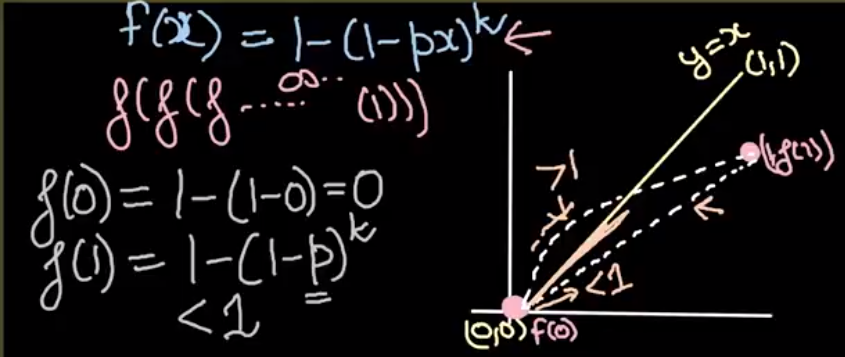 f(x) = 1-(1-px)^k ←
f(f(f ...... ∞ ... (1)))
f(0) = 1-(1-0) = 0
f(1) = 1-(1-p)^k
< 1
y=x
(1,1)
(1,f(1))
>1
<1
(0,0) f(0)